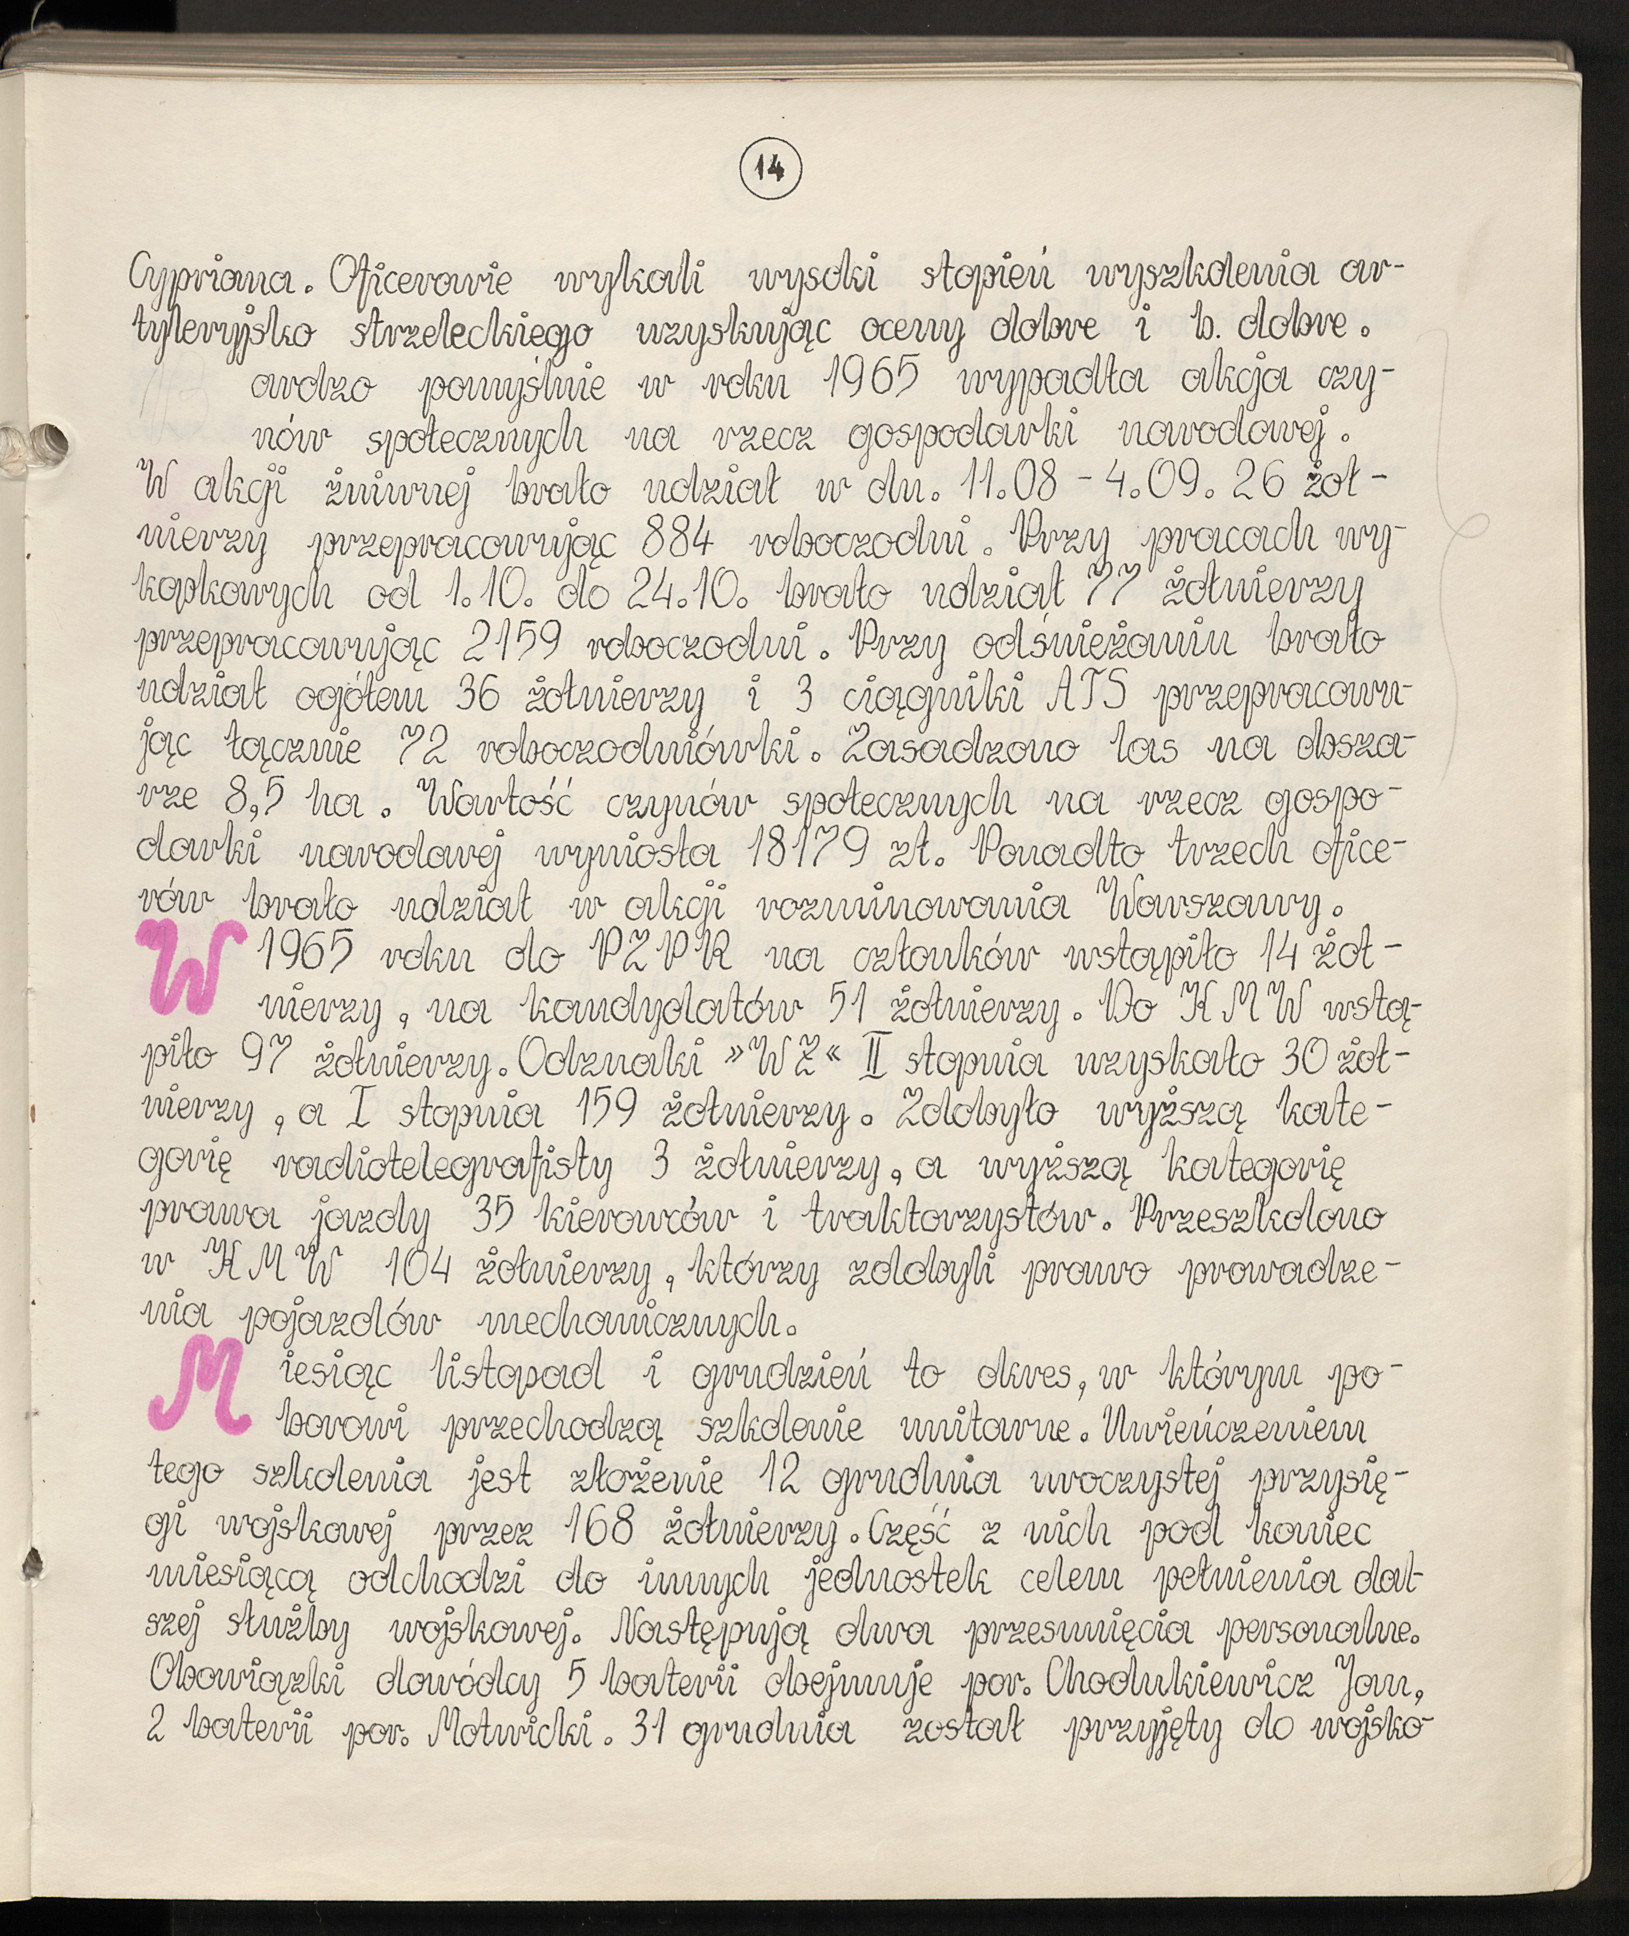 14
Cypriana. Oficerowie wykali wysoki stopień wyszkolenia ar-
tyleryjsko strzeleckiego uzyskując oceny dobre i b. dobre.
ardzo pomyślnie w roku 1965 wypadła akcja czy-
nów społecznych na rzecz gospodarki narodowej.
W akcji żniwnej brało udział w dn. 11.08 - 4.09. 26 żoł-
nierzy przepracowując 884 roboczodni. Przy pracach wy-
kopkowych od 1.10. do 24.10. brało udział 77 żołnierzy
przepracowując 2159 roboczodni. Przy odśnieżaniu brało
udział ogółem 36 żołnierzy i 3 ciągniki ATS przepracowu-
jąc łącznie 72 roboczodniówki. Zasadzono las na obsza-
rze 8,5 ha. Wartość czynów społecznych na rzecz gospo-
darki narodowej wyniosła 18179 zł. Ponadto trzech ofice-
rów brało udział w akcji rozminowania Warszawy.
W 1965 roku do PZPR na członków wstąpiło 14 żoł-
nierzy, na kandydatów 51 żołnierzy. Do KMW wstą-
piło 97 żołnierzy. Odznaki »WŻ« II stopnia uzyskało 30 żoł-
nierzy, a I stopnia 159 żołnierzy. Zdobyło wyższą kate-
gorię radiotelegrafisty 3 żołnierzy, a wyższą kategorię
prawa jazdy 35 kierowców i traktorzystów. Przeszkolono
w KMW 104 żołnierzy, którzy zdobyli prawo prowadze-
nia pojazdów mechanicznych.
Miesiąc listopad i grudzień to okres, w którym po-
borowi przechodzą szkolenie unitarne. Uwieńczeniem
tego szkolenia jest złożenie 12 grudnia uroczystej przysię-
gi wojskowej przez 168 żołnierzy. Część z nich pod koniec
miesiącą odchodzi do innych jednostek celem pełnienia dal-
szej służby wojskowej. Następują dwa przesunięcia personalne.
Obowiązki dowódcy 5 baterii obejmuje por. Chodukiewicz Jan,
2 baterii por. Motwicki. 31 grudnia został przyjęty do wojsko-